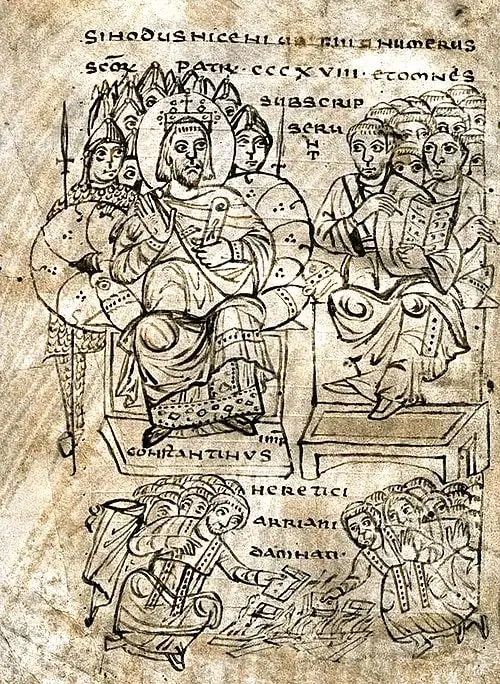 SINODUS NICENI NUMERUS
SCŌR PATRU · CCCXVIII · ET OMNES
SUBSCRIP
SERU
NT
CONSTANTINUS IMP
HERETICI
ARRIANI
DAMNATI ·